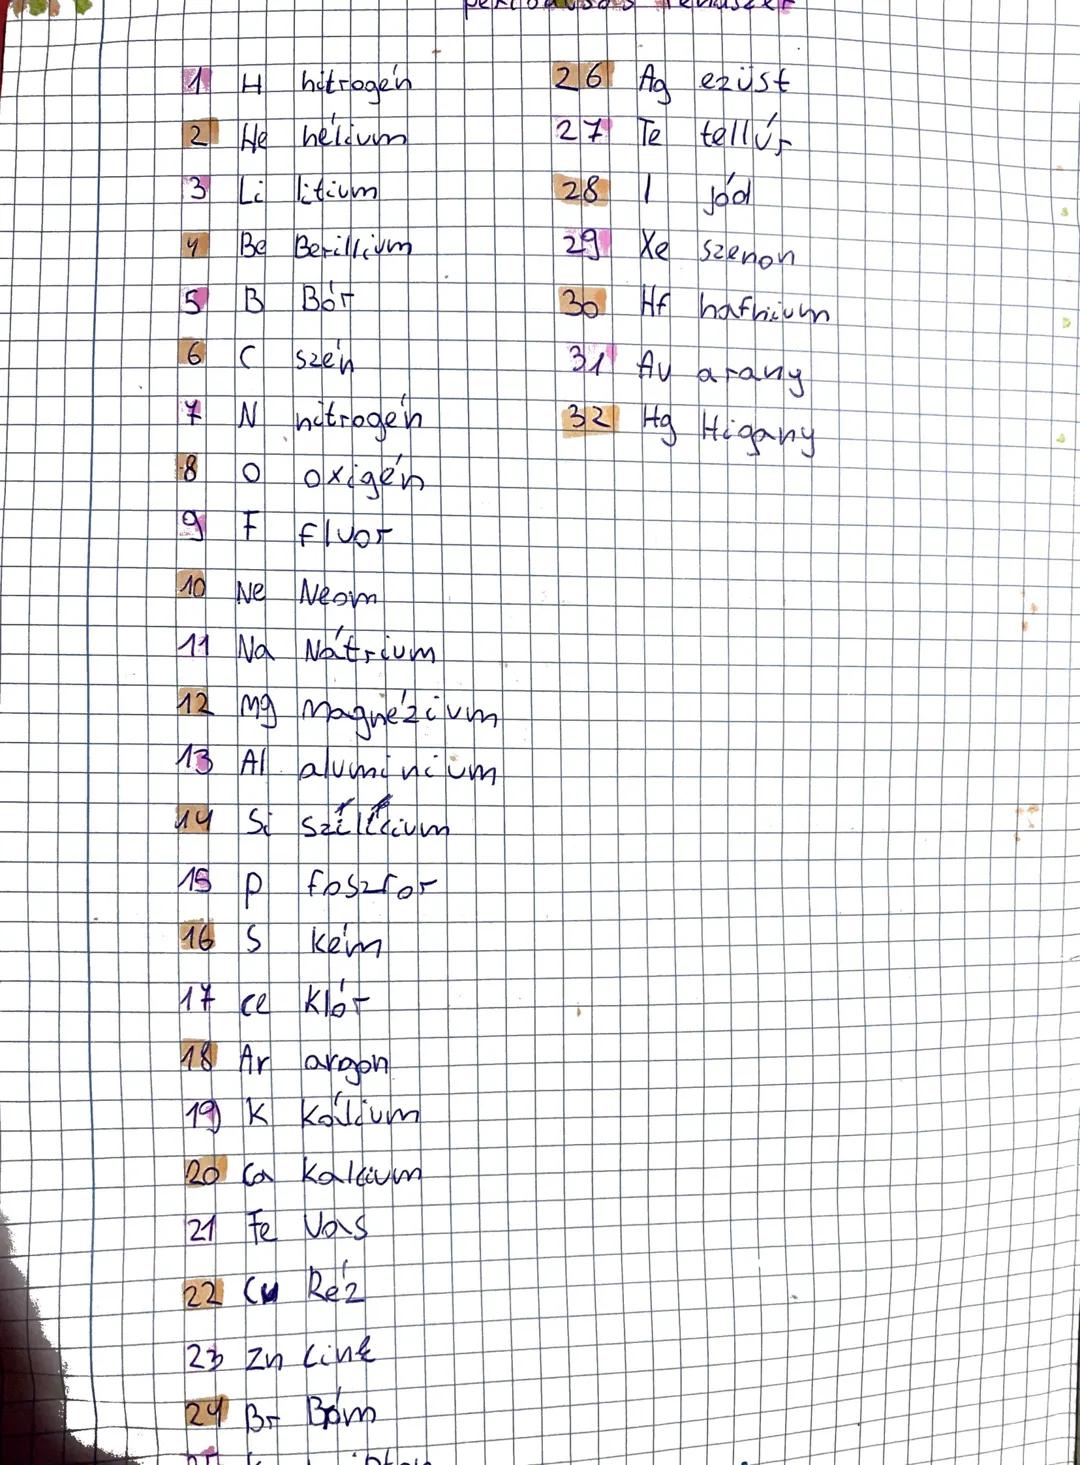 periódusos rendszer
1 H hitrogén
2 He hélium
3 Li litium
4 Be Berillium
5 B Bór
6 C szén
7 N nitrogén
8 O oxigén
9 F fluor
10 Ne Neom
11 Na Nátrium
12 Mg Magnézium
13 Al aluminium
14 Si
15 P foszfor
16 S kém
17 Cl Klór
18 Ar argon
19 K Kálium
20 Ca Kalcium
21 Fe Vas
22 Cu Réz
23 Zn Cink
24 Br Bóm
26 Ag ezüst
27 Te tellúr
28 I jód
29 Xe szenon
30 Hf hafnium
31 Au arany
32 Hg Higany